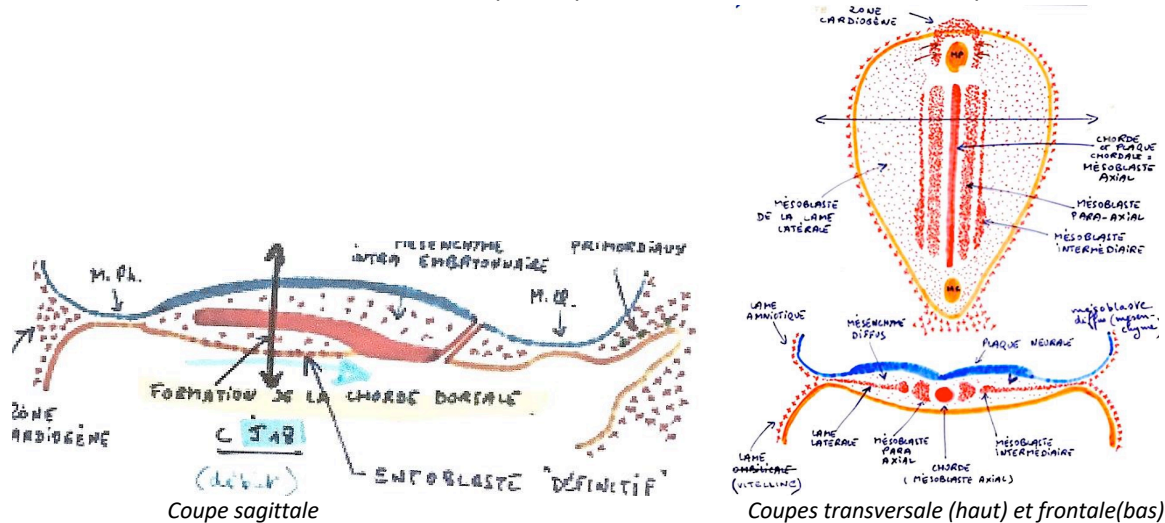 MESENCHYME
INTRA EMBRYONNAIRE
PRIMORDIAUX
M. Ph.
M. Cl.
FORMATION DE LA CHORDE DORSALE
ZÔNE
ARDIOGÈNE
C J18
(début)
ENTOBLASTE "DÉFINITIF"
Coupe sagittale
ZONE
CARDIOGÈNE
MP
CHORDE
et PLAQUE
CHORDALE =
MÉSOBLASTE
AXIAL
MÉSOBLASTE
DE LA LAME
LATÉRALE
MÉSOBLASTE
PARA-AXIAL
MÉSOBLASTE
INTERMÉDIAIRE
MC
LAME
AMNIOTIQUE
MÉSENCHYME
DIFFUS
PLAQUE NEURALE
mésoblaste
diffus (mésen-
chyme)
LAME
LATÉRALE
MÉSOBLASTE
PARA
AXIAL
MÉSOBLASTE
INTERMÉDIAIRE
CHORDE
(MÉSOBLASTE AXIAL)
LAME
OMBILICALE
(VITELLINE)
Coupes transversale (haut) et frontale(bas)